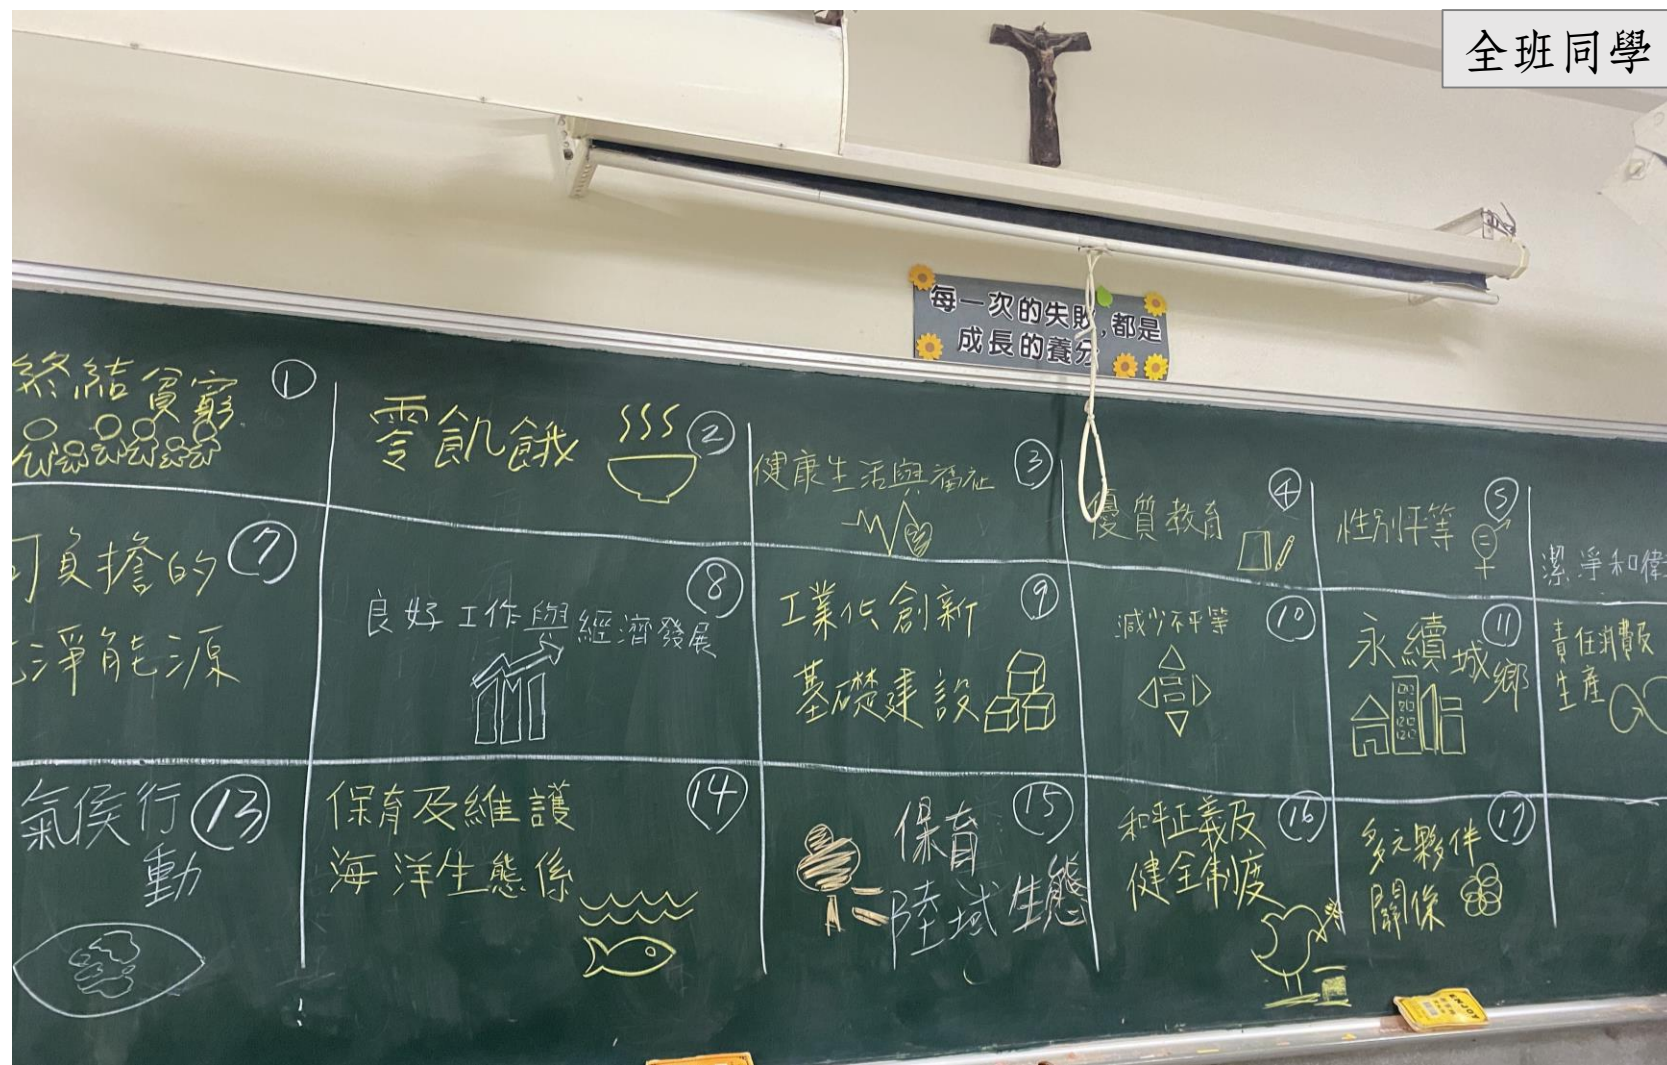 全班同學
每一次的失敗,都是
成長的養分
終結貧窮 ①
零飢餓 ②
健康生活與福祉 ③
優質教育 ④
性別平等 ⑤
潔淨和衛
可負擔的 ⑦
淨能源
良好工作與經濟發展 ⑧
工業化創新 ⑨
基礎建設
減少不平等 ⑩
永續城鄉 ⑪
責任消費及
生產
氣侯行 ⑬
動
保育及維護 ⑭
海洋生態係
保育 ⑮
陸域生態
和平正義及 ⑯
健全制度
多元夥伴 ⑰
關係